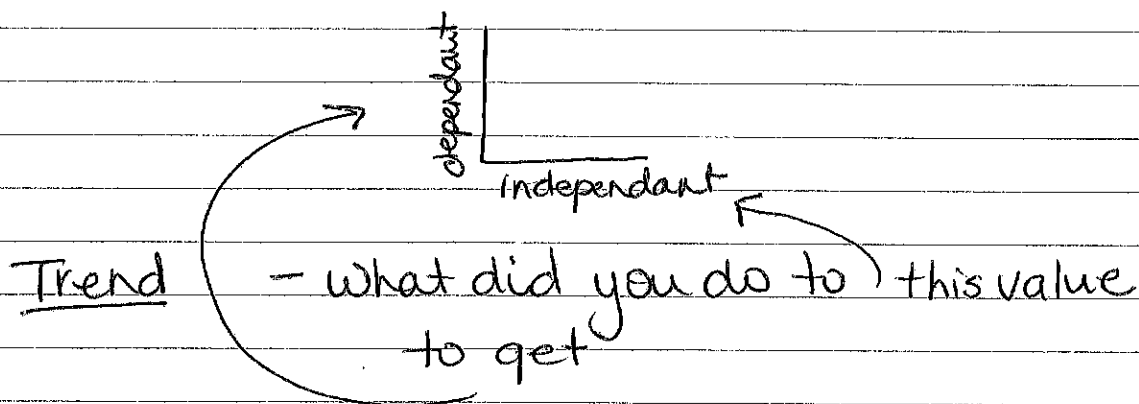 dependant
independant
Trend - what did you do to this value
to get